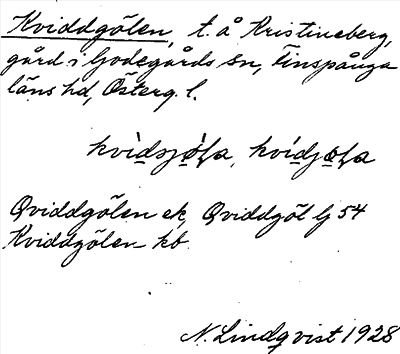 Kviddgölen, t. å Kristineberg,
gård i Godegårds sn, Finspånga
läns hd, Österg. l.
Qviddgölen ek, Qviddgöl lj 54
Kviddgölen kb.
N. Lindqvist 1928